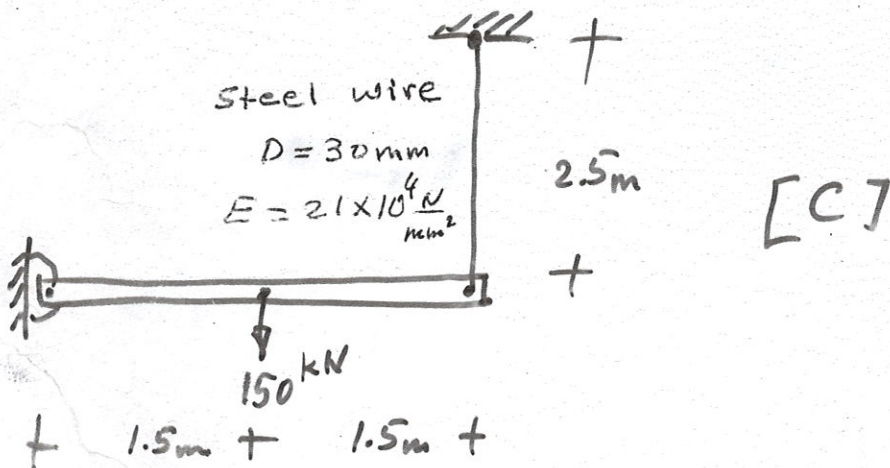 steel wire
D = 30mm
E = 21×10⁴ N/mm²
2.5m
[C]
150 kN
1.5m 1.5m